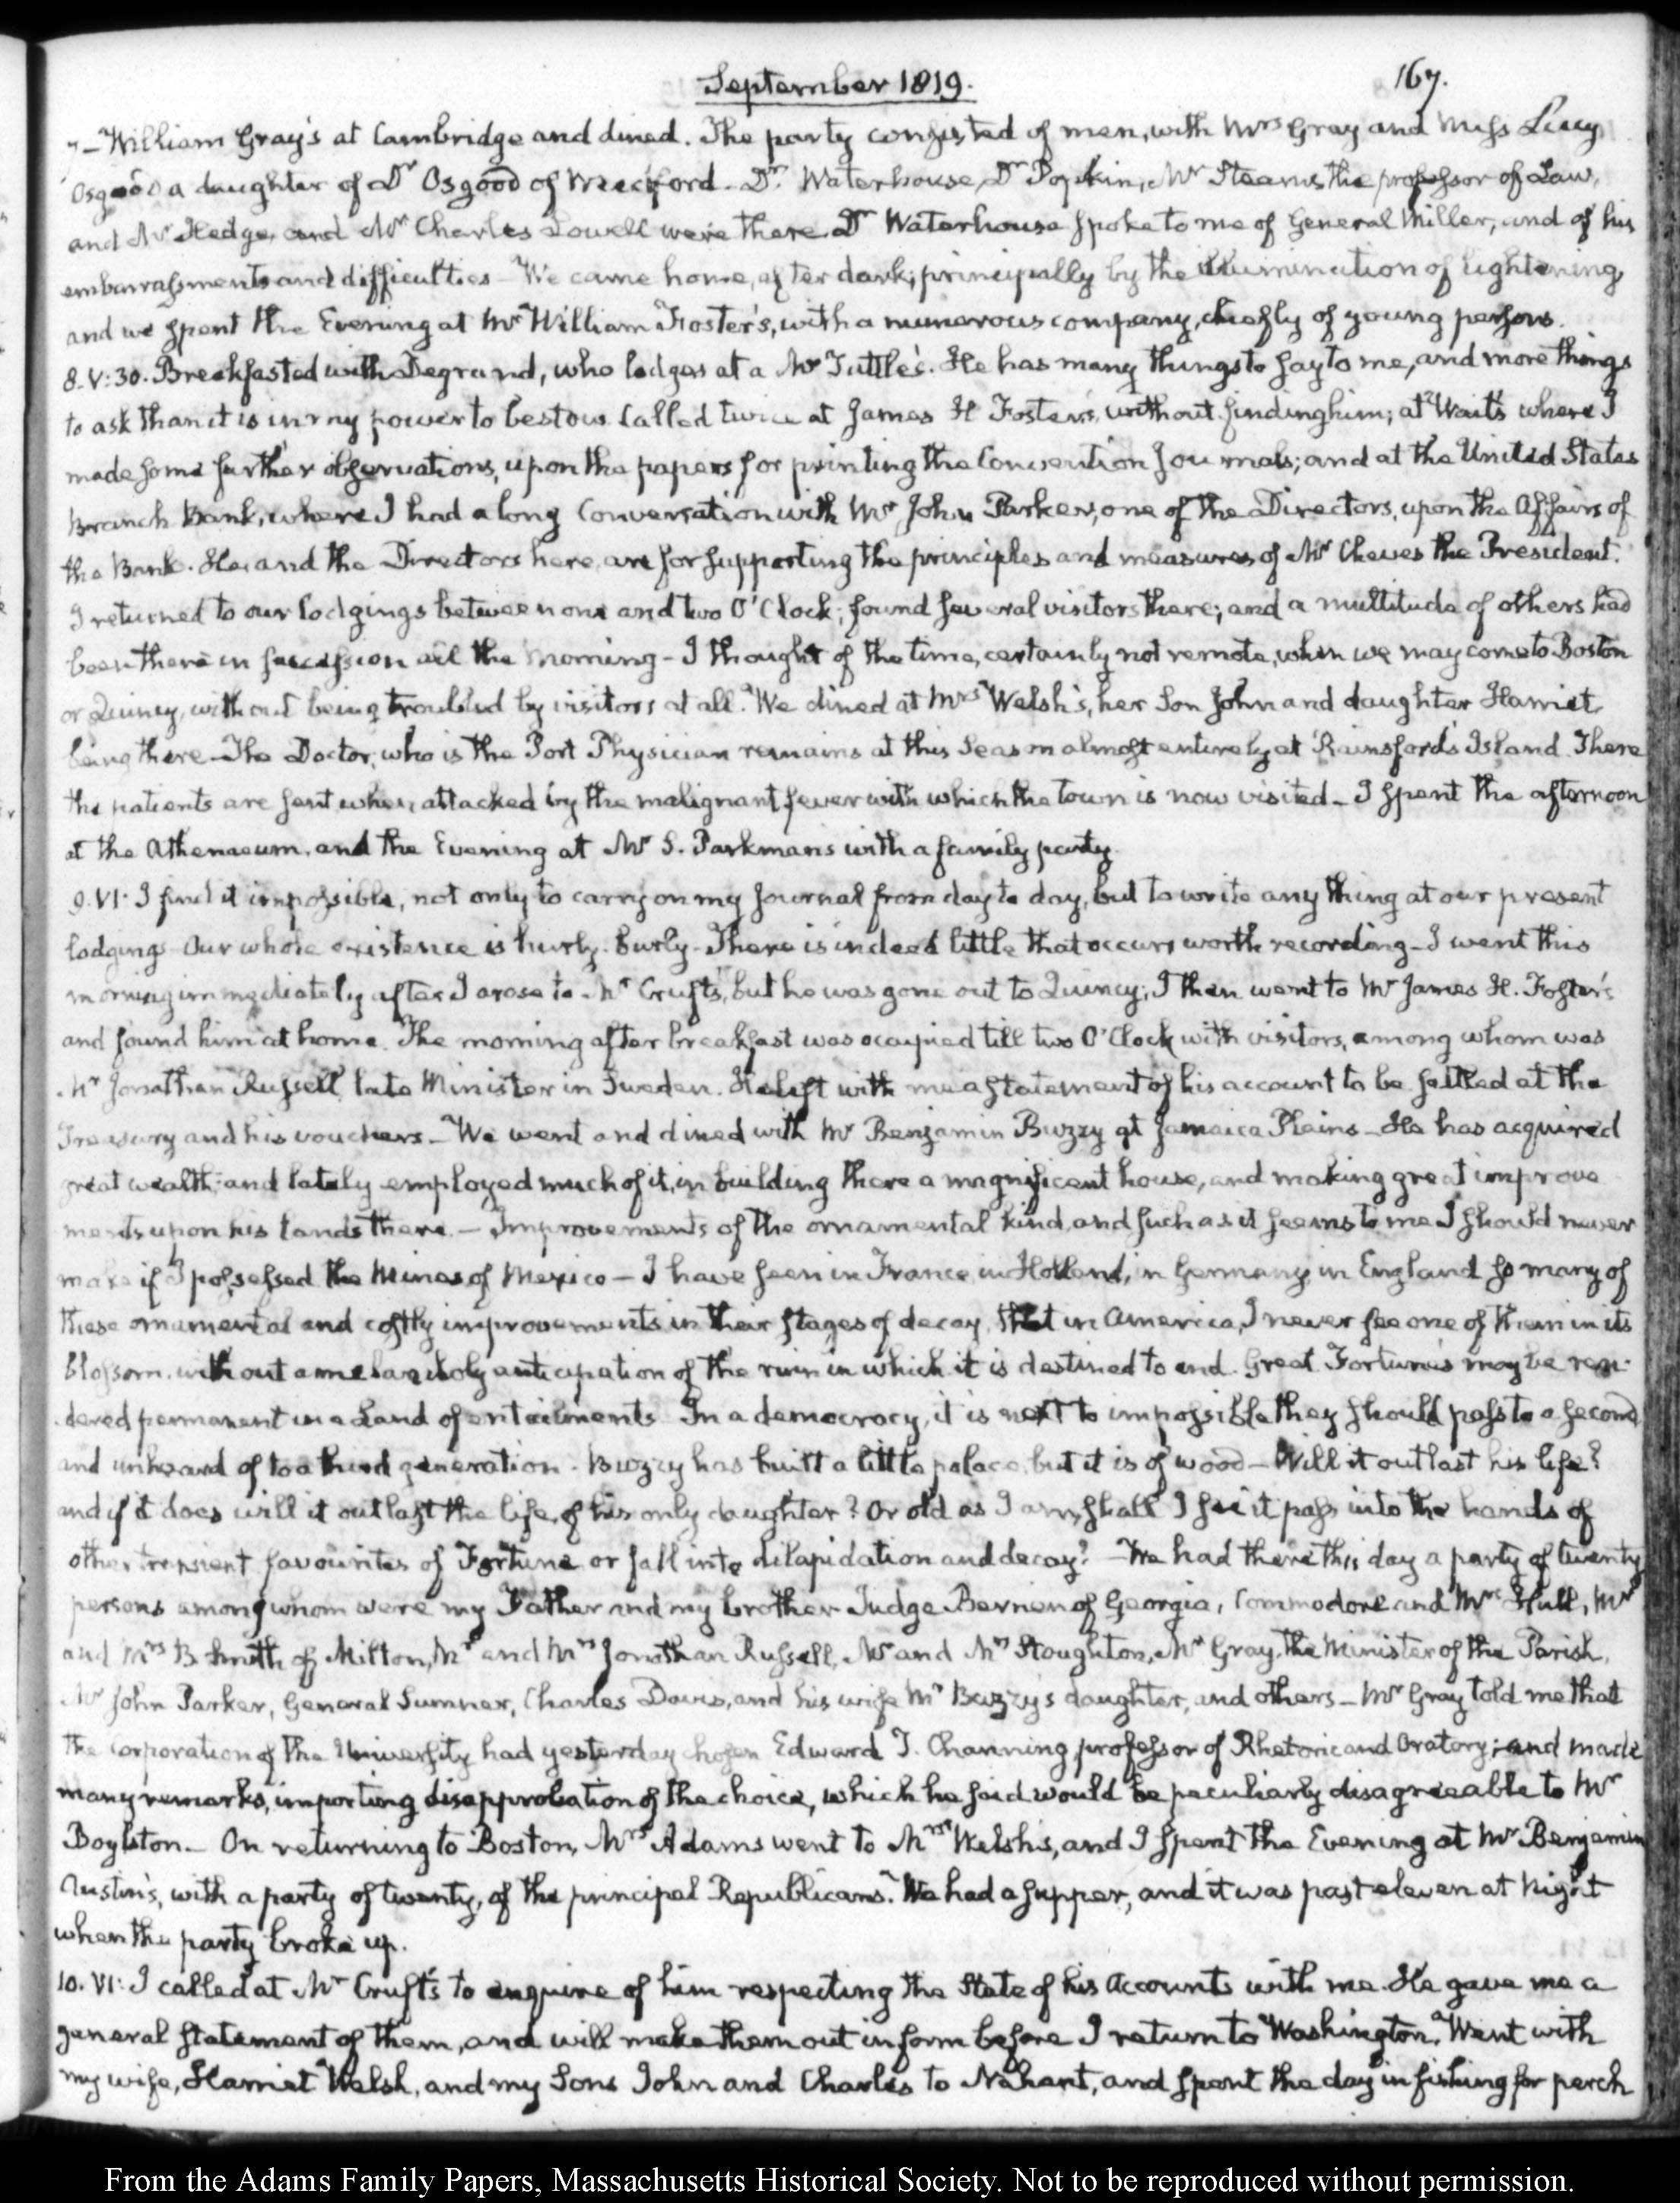 September 1819.
167.
7 — William Gray's at Cambridge and dined. The party consisted of men, with Mrs Gray and Miss Lucy
Osgood a daughter of Dr Osgood of Medford. Dr. Waterhouse, Dr Popkin, Mr Stearns the professor of Law,
and Mr Hedge, and Mr Charles Lowell were there. Dr Waterhouse spoke to me of General Miller, and of his
embarrassments and difficulties — We came home, after dark, principally by the illumination of lightening,
and we spent the Evening at Mr William Foster's, with a numerous company, chiefly of young persons.
8. V:30. Breakfasted with Degrand, who lodges at a Mr Tuttle's. He has many things to say to me, and more things
to ask than it is in my power to bestow. Called twice at James H Foster's, without finding him; at Wait's where I
made some further observations, upon the papers for printing the Convention Journals; and at the United States
Branch Bank, where I had a long Conversation with Mr John Parker, one of the Directors, upon the Affairs of
the Bank. He, and the Directors here, are for supporting the principles and measures of Mr Cheves the President.
I returned to our lodgings between one and two O'Clock; found several visitors there; and a multitude of others had
been there in succession all the morning — I thought of the time, certainly not remote, when we may come to Boston
or Quincy, without being troubled by visitors at all. We dined at Mrs Welsh's, her Son John and daughter Harriet
being there — The Doctor, who is the Port Physician remains at this Season almost entirely at Rainsford's Island. There
the patients are sent when attacked by the malignant fever with which the town is now visited — I spent the afternoon
at the Athenaeum, and the Evening at Mr S. Parkman's with a family party.
9. VI. I find it impossible, not only to carry on my Journal from day to day, but to write any thing at our present
lodgings. Our whole existence is hurly-burly — There is indeed little that occurs worth recording — I went this
morning immediately after I arose to Mr Cruft's, but he was gone out to Quincy; I then went to Mr James H. Foster's
and found him at home. The morning after breakfast was occupied till two O'Clock with visitors, among whom was
Mr Jonathan Russell, late Minister in Sweden. He left with me a statement of his account to be settled at the
Treasury and his vouchers — We went and dined with Mr Benjamin Buzzy at Jamaica Plains — He has acquired
great wealth; and lately employed much of it, in building there a magnificent house, and making great improve
ments upon his lands there — Improvements of the ornamental kind, and such as it seems to me I should never
make if I possessed the Mines of Mexico — I have seen in France, in Holland, in Germany, in England so many of
these ornamental and costly improvements in their stages of decay, that in America, I never see one of them in its
blossom, without a melancholy anticipation of the ruin in which it is destined to end. Great Fortunes may be ren-
dered permanent in a Land of entailments. In a democracy, it is next to impossible they should pass to a second
and unheard of to a third generation. Buzzy has built a little palace, but it is of wood — Will it outlast his life?
and if it does will it outlast the life, of his only daughter? Or old as I am, shall I see it pass into the hands of
other transient favourites of Fortune or fall into dilapidation and decay? — We had there this day a party of twenty
persons among whom were my Father and my brother Judge Berrien of Georgia, Commodore and Mrs Hull, Mr
and Mrs B Smith of Milton, Mr and Mrs Jonathan Russell, Mr and Mrs Stoughton, Mr Gray, the Minister of the Parish,
Mr John Parker, General Sumner, Charles Davis, and his wife Mr Buzzy's daughter, and others — Mr Gray told me that
the Corporation of the University had yesterday chosen Edward T. Channing, professor of Rhetoric and Oratory; and made
many remarks, importing disapprobation of the choice, which he said would be peculiarly disagreeable to Mr
Boylston — On returning to Boston, Mrs Adams went to Mrs Welsh's, and I spent the Evening at Mr Benjamin
Austin's, with a party of twenty, of the principal Republicans. We had a supper, and it was past eleven at Night
when the party broke up.
10. VI: I called at Mr Cruft's to enquire of him respecting the State of his Accounts with me. He gave me a
general statement of them, and will make them out in form before I return to Washington. Went with
my wife, Harriet Welsh, and my Sons John and Charles to Nahant, and spent the day in fishing for perch
From the Adams Family Papers, Massachusetts Historical Society. Not to be reproduced without permission.